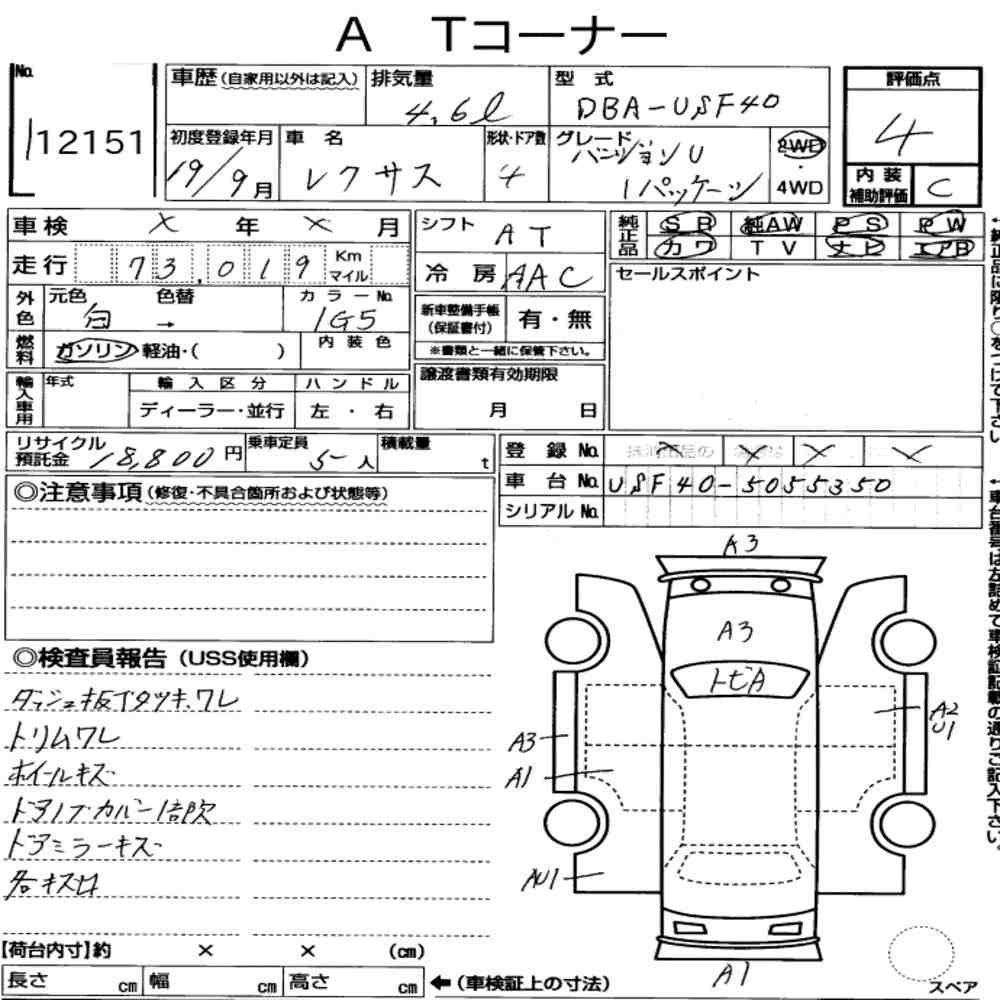 A Tコーナー
No. 12151
車歴(自家用以外は記入)
排気量 4.6l
型式 DBA-USF40
評価点 4
初度登録年月 19/9月
車名 レクサス
形状・ドア数 4
グレード バージョンU
Iパッケージ
2WD・4WD
内装補助評価 C
車検 X 年 X 月
シフト AT
純正品 SR 純AW PS PW
カワ TV ナビ エアB
走行 73,019 Km マイル
冷房 AAC
セールスポイント
外色 元色 白 色替 →
カラーNo. 1G5
新車整備手帳(保証書付) 有・無
※書類と一緒に保管下さい。
燃料 ガソリン・軽油・( )
内装色
輸入車用 年式 輸入区分 ハンドル
ディーラー・並行 左・右
譲渡書類有効期限
月 日
リサイクル預託金 18,800円
乗車定員 5人
積載量 t
登録No.
車台No. USF40-5055350
シリアルNo.
◎注意事項(修復・不具合箇所および状態等)
◎検査員報告(USS使用欄)
ダッシュ板イタツキ、ワレ
トリムワレ
ホイールキズ
ドアノブカバー1部欠
ドアミラーキズ
各キズ凹
A3
A3
トビA
A2
U1
A3
A1
AU1
A1
【荷台内寸】約 × × (cm)
長さ cm 幅 cm 高さ cm ←(車検証上の寸法)
スペア
←純正品に限り○をつけて下さい。
←車台番号は左詰めで車検証記載の通りご記入下さい。